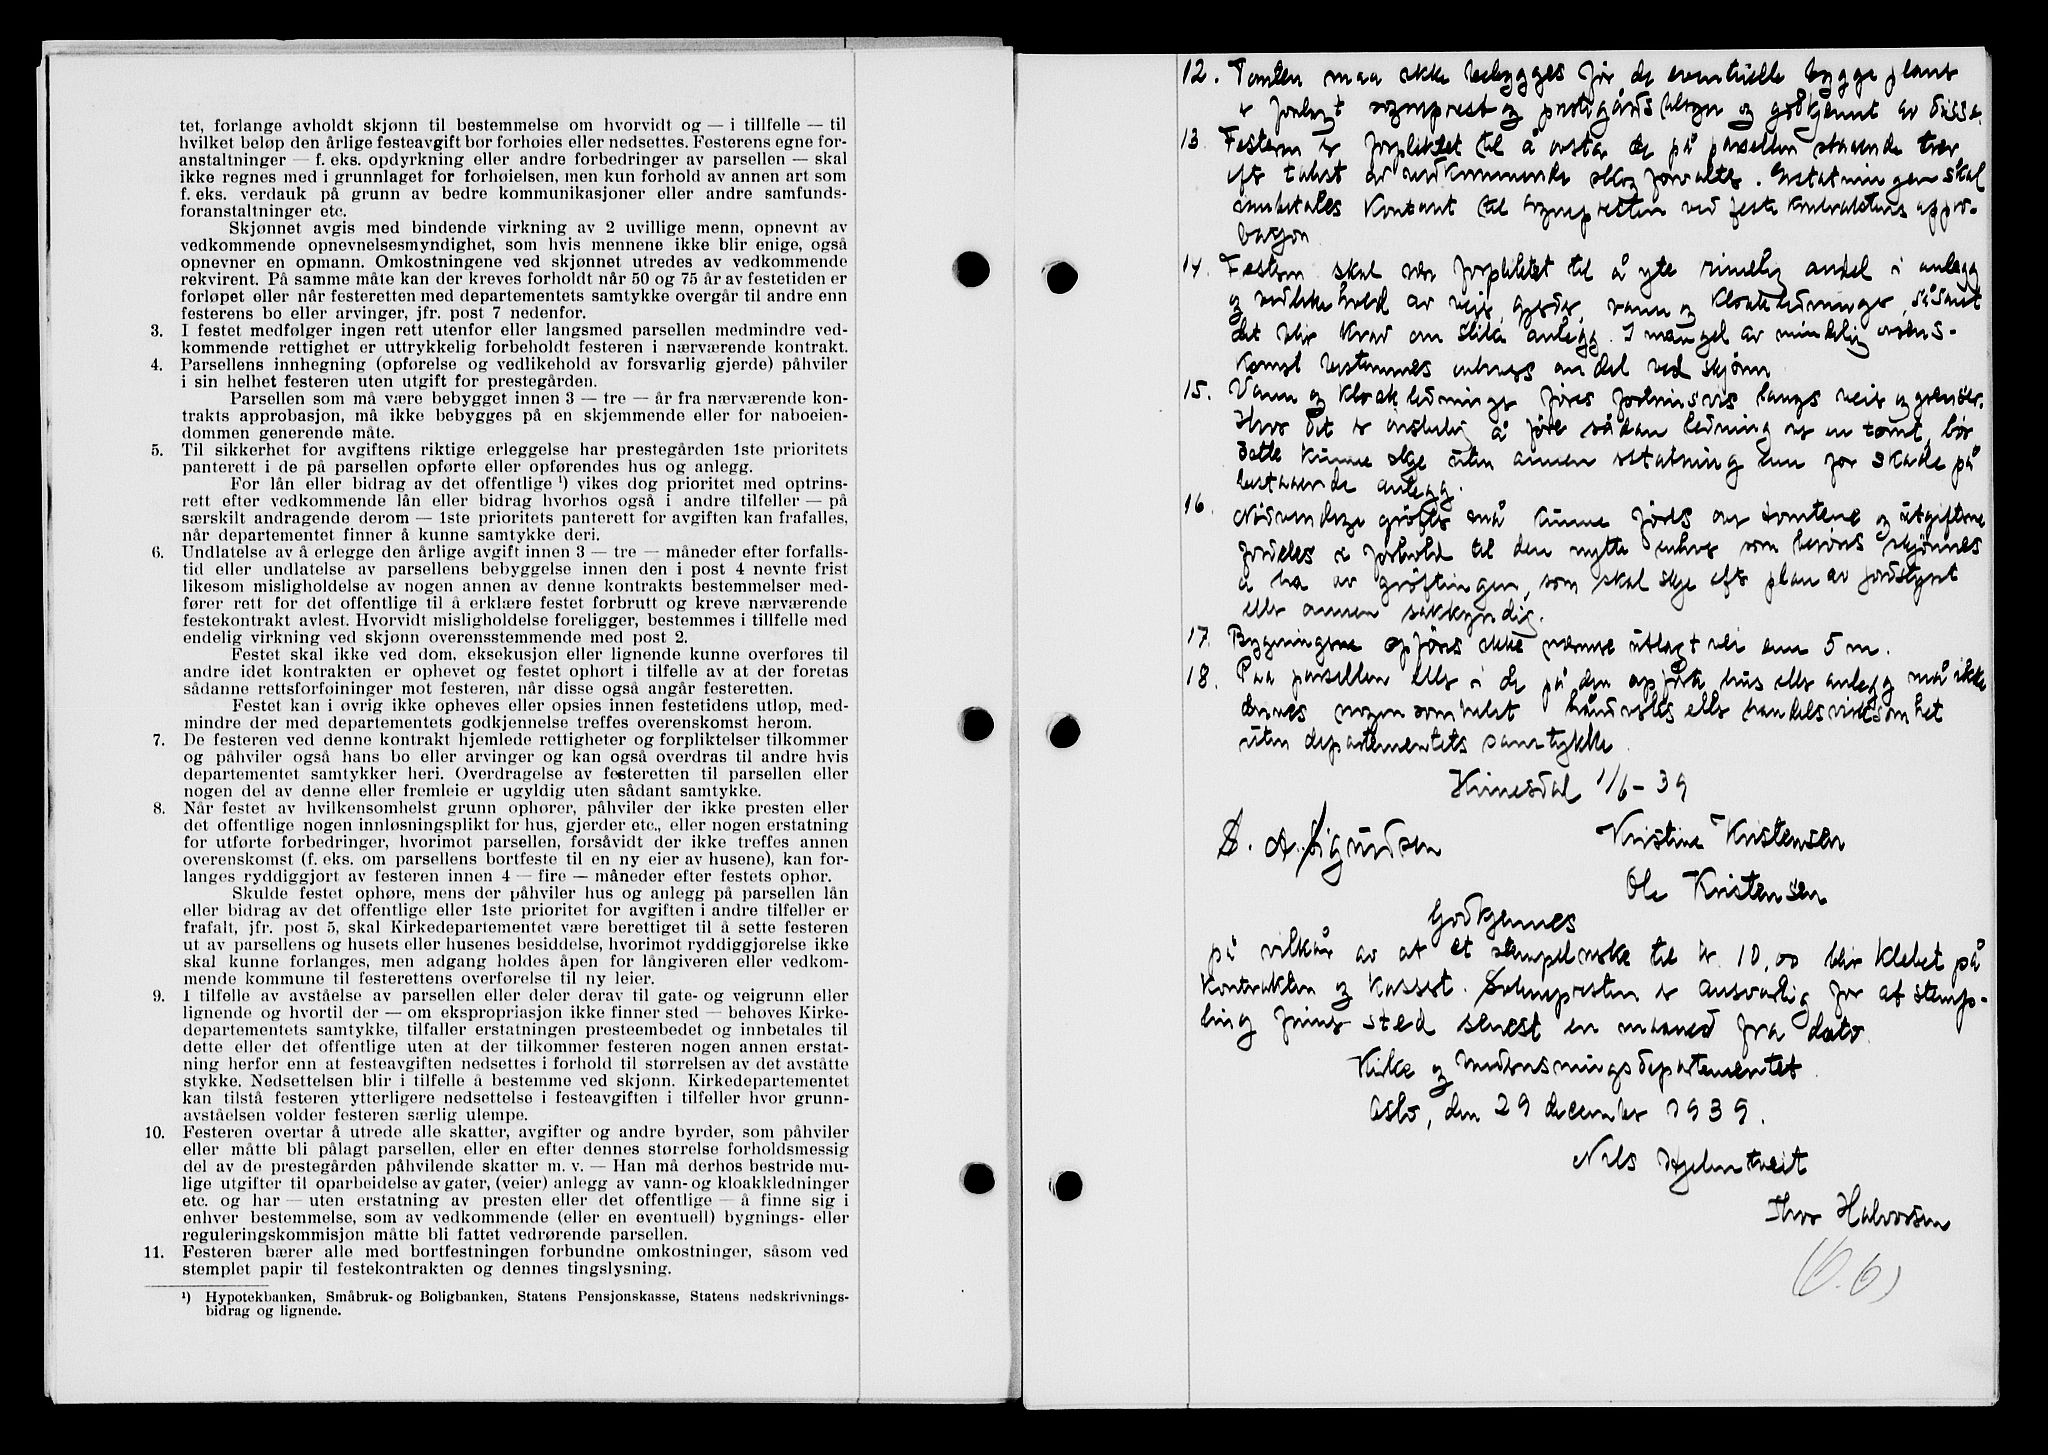 tet, forlange avholdt skjønn til bestemmelse om hvorvidt og — i tillfelle — til
hvilket beløp den årlige festeavgift bør forhøies eller nedsettes. Festerens egne for-
anstaltninger — f. eks. opdyrkning eller andre forbedringer av parsellen — skal
ikke regnes med i grunnlaget for forhøielsen, men kun forhold av annen art som
f. eks. verdauk på grunn av bedre kommunikasjoner eller andre samfunds-
foranstaltninger etc.
Skjønnet avgis med bindende virkning av 2 uvillige menn, opnevnt av
vedkommende opnevnelsesmyndighet, som hvis mennene ikke blir enige, også
opnevner en opmann. Omkostningene ved skjønnet utredes av vedkommende
rekvirent. På samme måte kan der kreves forholdt når 50 og 75 år av festetiden er
forløpet eller når festeretten med departementets samtykke overgår til andre enn
festerens bo eller arvinger, jfr. post 7 nedenfor.
3. I festet medfølger ingen rett utenfor eller langsmed parsellen medmindre ved-
kommende rettighet er uttrykkelig forbeholdt festeren i nærværende kontrakt.
4. Parsellens innhegning (opførelse og vedlikehold av forsvarlig gjerde) påhviler
i sin helhet festeren uten utgift for prestegården.
Parsellen som må være bebygget innen 3 — tre — år fra nærværende kon-
trakts approbasjon, må ikke bebygges på en skjemmende eller for naboeien-
dommen generende måte.
5. Til sikkerhet for avgiftens riktige erleggelse har prestegården 1ste prioritets
panterett i de på parsellen opførte eller opførendes hus og anlegg.
For lån eller bidrag av det offentlige ¹) vikes dog prioritet med optrins-
rett efter vedkommende lån eller bidrag hvorhos også i andre tilfeller — på
særskilt andragende derom — 1ste prioritets panterett for avgiften kan frafalles,
når departementet finner å kunne samtykke deri.
6. Undlatelse av å erlegge den årlige avgift innen 3 — tre — måneder efter forfalls-
tid eller undlatelse av parsellens bebyggelse innen den i post 4 nevnte frist
likesom misligholdelse av nogen annen av denne kontrakts bestemmelser med-
fører rett for det offentlige til å erklære festet forbrutt og kreve nærværende
festekontrakt avlest. Hvorvidt misligholdelse foreligger, bestemmes i tilfelle med
endelig virkning ved skjønn overensstemmende med post 2.
Festet skal ikke ved dom, eksekusjon eller lignende kunne overføres til
andre idet kontrakten er ophevet og festet ophørt i tilfelle av at der foretas
sådanne rettsforføininger mot festeren, når disse også angår festeretten.
Festet kan i øvrig ikke opheves eller opsies innen festetidens utløp, med-
mindre der med departementets godkjennelse treffes overenskomst herom.
7. De festeren ved denne kontrakt hjemlede rettigheter og forpliktelser tilkommer
og påhviler også hans bo eller arvinger og kan også overdras til andre hvis
departementet samtykker heri. Overdragelse av festeretten til parsellen eller
nogen del av denne eller fremleie er ugyldig uten sådant samtykke.
8. Når festet av hvilkensomhelst grunn ophører, påhviler der ikke presten eller
det offentlige nogen innløsningsplikt for hus, gjerder etc., eller nogen erstatning
for utførte forbedringer, hvorimot parsellen, forsåvidt der ikke treffes annen
overenskomst (f. eks. om parsellens bortfeste til en ny eier av husene), kan for-
langes ryddiggjort av festeren innen 4 — fire — måneder efter festets ophør.
Skulde festet ophøre, mens der påhviler hus og anlegg på parsellen lån
eller bidrag av det offentlige eller 1ste prioritet for avgiften i andre tilfeller er
frafalt, jfr. post 5, skal Kirkedepartementet være berettiget til å sette festeren
ut av parsellens og husets eller husenes besiddelse, hvorimot ryddiggjørelse ikke
skal kunne forlanges, men adgang holdes åpen for långiveren eller vedkom-
mende kommune til festerettens overførelse til ny leier.
9. I tilfelle av avståelse av parsellen eller deler derav til gate- og veigrunn eller
lignende og hvortil der — om ekspropriasjon ikke finner sted — behøves Kirke-
departementets samtykke, tilfaller erstatningen presteembedet og innbetales til
dette eller det offentlige uten at der tilkommer festeren nogen annen erstat-
ning herfor enn at festeavgiften nedsettes i forhold til størrelsen av det avståtte
stykke. Nedsettelsen blir i tilfelle å bestemme ved skjønn. Kirkedepartementet
kan tilstå festeren ytterligere nedsettelse i festeavgiften i tilfeller hvor grunn-
avståelsen volder festeren særlig ulempe.
10. Festeren overtar å utrede alle skatter, avgifter og andre byrder, som påhviler
eller måtte bli pålagt parsellen, eller en efter dennes størrelse forholdsmessig
del av de prestegården påhvilende skatter m. v. — Han må derhos bestride mu-
lige utgifter til oparbeidelse av gater, (veier) anlegg av vann- og kloakkledninger
etc. og har — uten erstatning av presten eller det offentlige — å finne sig i
enhver bestemmelse, som av vedkommende (eller en eventuell) bygnings- eller
reguleringskommisjon måtte bli fattet vedrørende parsellen.
11. Festeren bærer alle med bortfestningen forbundne omkostninger, såsom ved
stemplet papir til festekontrakten og dennes tingslysning.
¹) Hypotekbanken, Småbruk- og Boligbanken, Statens Pensjonskasse, Statens nedskrivnings-
bidrag og lignende.
12. Tomten maa ikke bebygges før de eventuelle byggeplaner
er forelagt sogneprest og prestegårdstilsyn og godkjennt av disse.
13. Festeren er forpliktet til å erstatte de på parsellen staaende trær
efter takst av vedkommende skogforvalter. Erstatningen skal
innbetales kontant til sognepresten ved festekontraktens appro-
basjon
14. Festeren skal være forpliktet til å yte rimelig andel i anlegg
og vedlikehold av veier, gjerder, vann og kloakkledninger, såsant
det blir krav om slike anlegg. I mangel av mindelig overens-
komst bestemmes enhvers andel ved skjønn
15. Vann og kloakkledninger føres fortrinsvis langs veier og grenser.
Hvis det er ønskelig å føre sådan ledning over en tomt, bør
dette kunne skje uten annen erstatning enn for skade på
bestaaende anlegg.
16. Nødvendige grøfter må kunne føres over tomtene og utgiftene
fordeles i forhold til den nytte enhver som berøres skjønnes
å ha av grøftingen, som skal skje efter plan av jordstyret
eller annen sakkyndig.
17. Bygningene opføres ikke nærmere utlagt vei enn 5 m.
18. Paa parsellen eller i de på den opførte hus eller anlegg må ikke
drives nogensomhelst håndverks eller handelsvirksomhet
uten departementets samtykke.
Kvinesdal 1/6 - 39
S. A. Sigurdsen Kristine Kristensen
Ole Kristensen
Godkjennes
på vilkår av at et stempelmerke til kr. 10,00 blir klebet på
kontrakten og kassert. Sognepresten er ansvarlig for at stemp-
ling finner sted senest en maaned fra dato.
Kirke og undervisningsdepartementet
Oslo, den 29 december 1939.
Nils Hjelmtveit
Thor Halvorsen